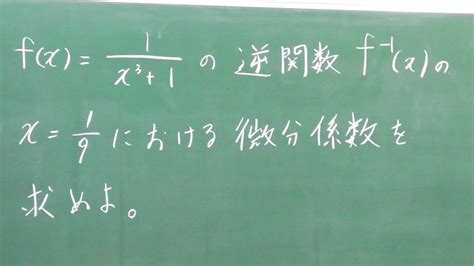 f(x) = 1/(x³+1) の 逆関数 f⁻¹(x)の
x = 1/9 における 微分係数を
求めよ。